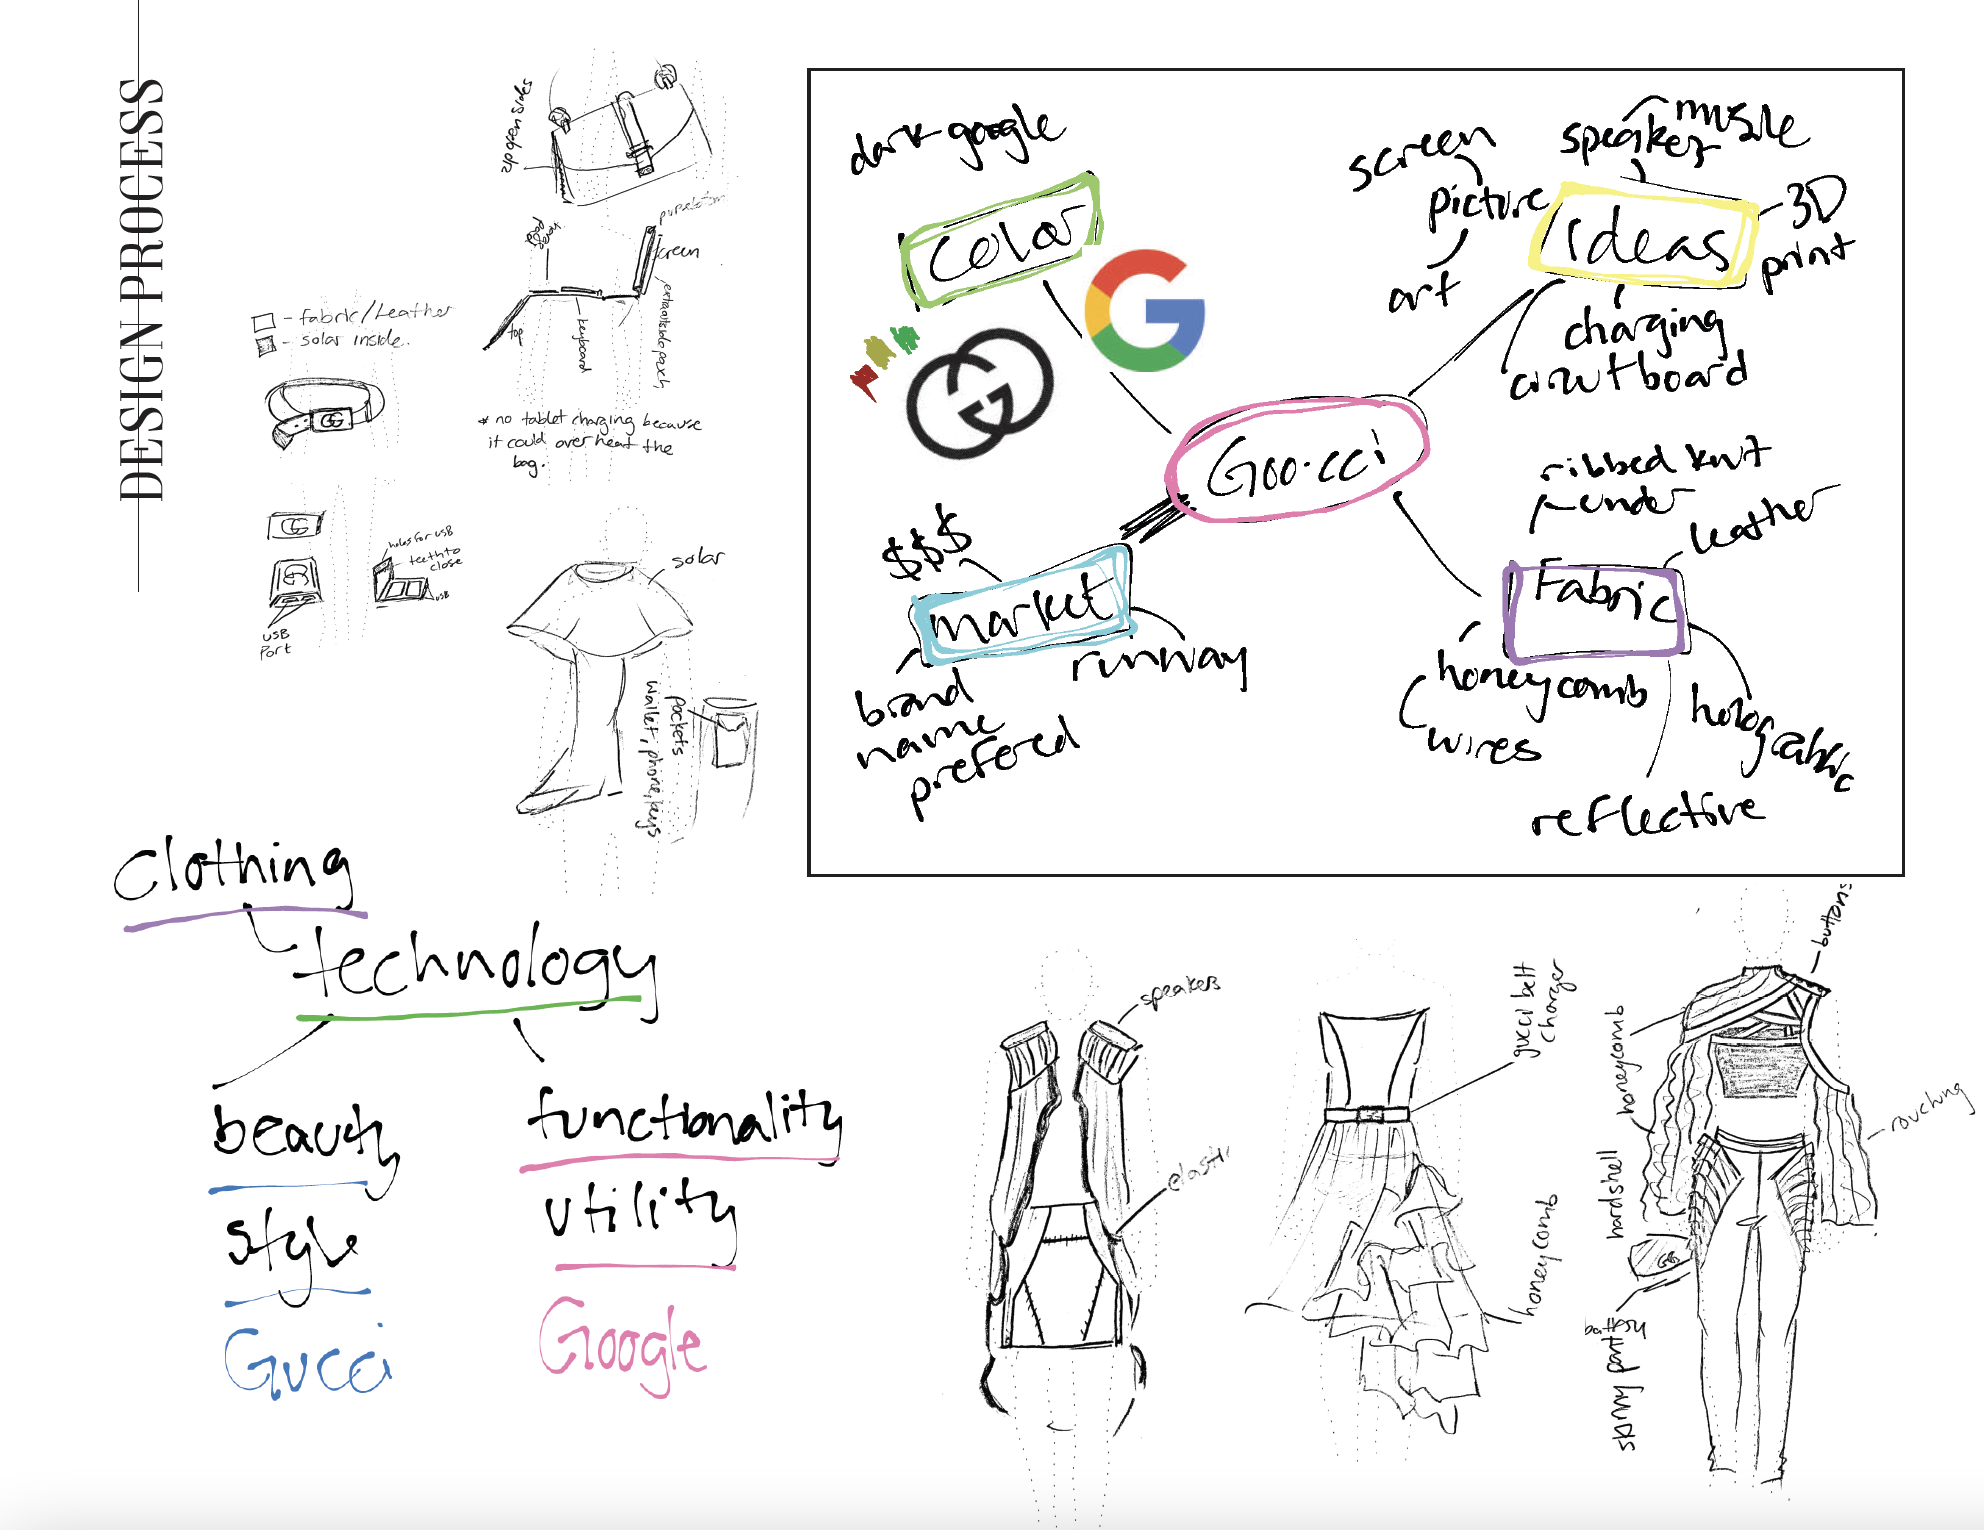 DESIGN PROCESS
zip open sides
screen
top
keyboard
- fabric/Leather
- solar inside.
GG
* no tablet charging because
it could over heat the
bag.
GG
holes for USB
teeth to
close
USB
USB
Port
solar
pockets
wallet, phone, keys
dark google
Color
G
Goo.cci
screen
picture
art
speaker
Ideas
3D
print
charging
market
$$$
runway
brand
name
prefered
Fabric
ribbed knit
under
leather
honeycomb
wires
reflective
clothing
technology
beauty
style
Gucci
functionality
utility
Google
speakers
gucci belt
charger
honeycomb
buttons
honeycomb
rouching
hardshell
skinny pant